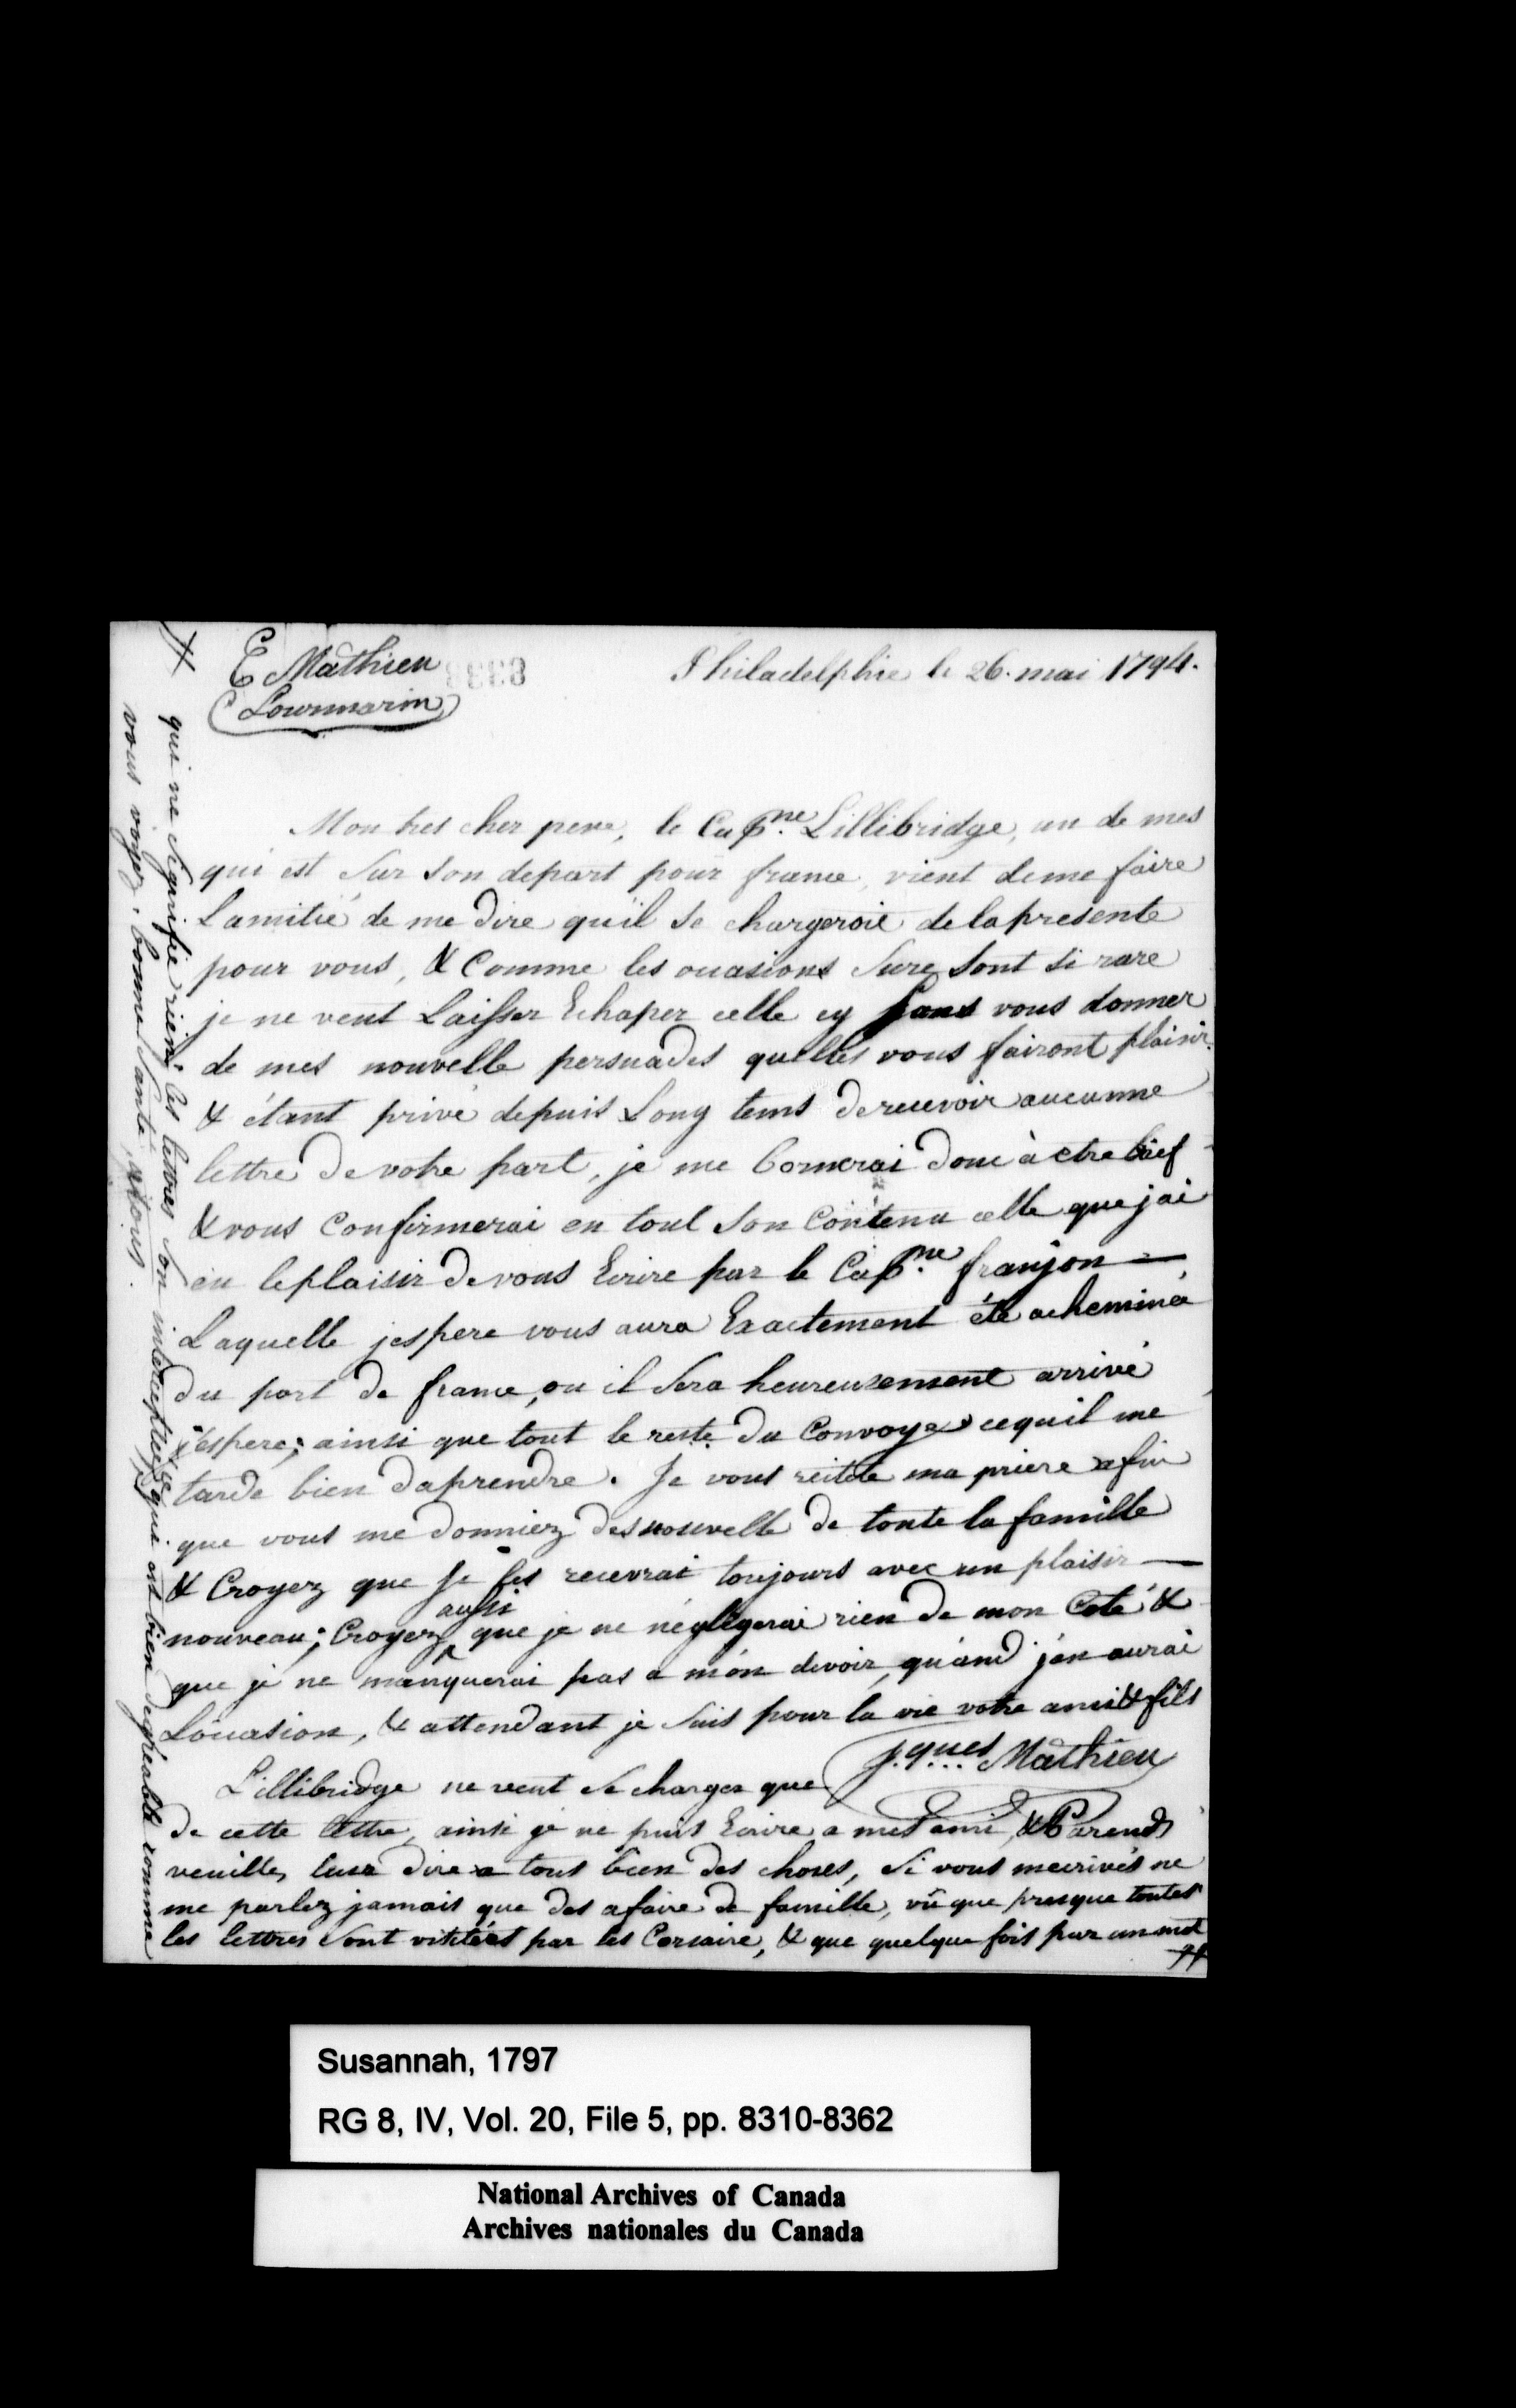 E Mathieu
Lourmarin
Philadelphie le 26. mai 1794.
Mon tres cher pere, le Capne. Lillibridge, un de mes
qui est sur son depart pour france, vient de me faire
Lamitié de me dire qu'il se chargeroit de la presente
pour vous, & Comme les ouasions sure sont si rare
je ne veut Laisser Echaper celle cy sans vous donner
de mes nouvelle persuades quelles vous fairont plaisir.
& étant privé depuis Long tems de recevoir aucunne
lettre de votre part, je me bornerai donc à etre brief
& vous Confirmerai en tout son Contenu celle que jai
eu le plaisir de vous Ecrire par le Capne. franjon —
Laquelle jespere vous aura Exactement été acheminé
du port de france, ou il sera heureusement arrivé
j'espere; ainsi que tout le reste du Convoye ce quil me
tarde bien daprendre. Je vous reitele ma priere afin
que vous me donniez des nouvelle de toute la famille
& Croyez que Je les recevrai toujours avec un plaisir —
nouveau; Croyez aussi que je ne négligerai rien de mon Coté &
que je ne manquerai pas a mon devoir, quand j'en aurai
Louasion, & attendant je suis pour la vie votre ami & fils
J.ques Mathieu
Lillibridge ne veut se charger que
de cette lettre, ainsi je ne puis Ecrire a mes ami, & Parends
veuille, leur dire a tous bien des choses, si vous mecrivés ne
me parlez jamais que des afaire de famille, vû que presque toutes
les lettres sont visitées par les Corsaire, & que quelque fois par un mot
#
#
qui ne signifie rien. les lettres son interceptées, ce qui est bien degreable comme
vous voyez. bonne santé a tous.
Susannah, 1797
RG 8, IV, Vol. 20, File 5, pp. 8310-8362
National Archives of Canada
Archives nationales du Canada